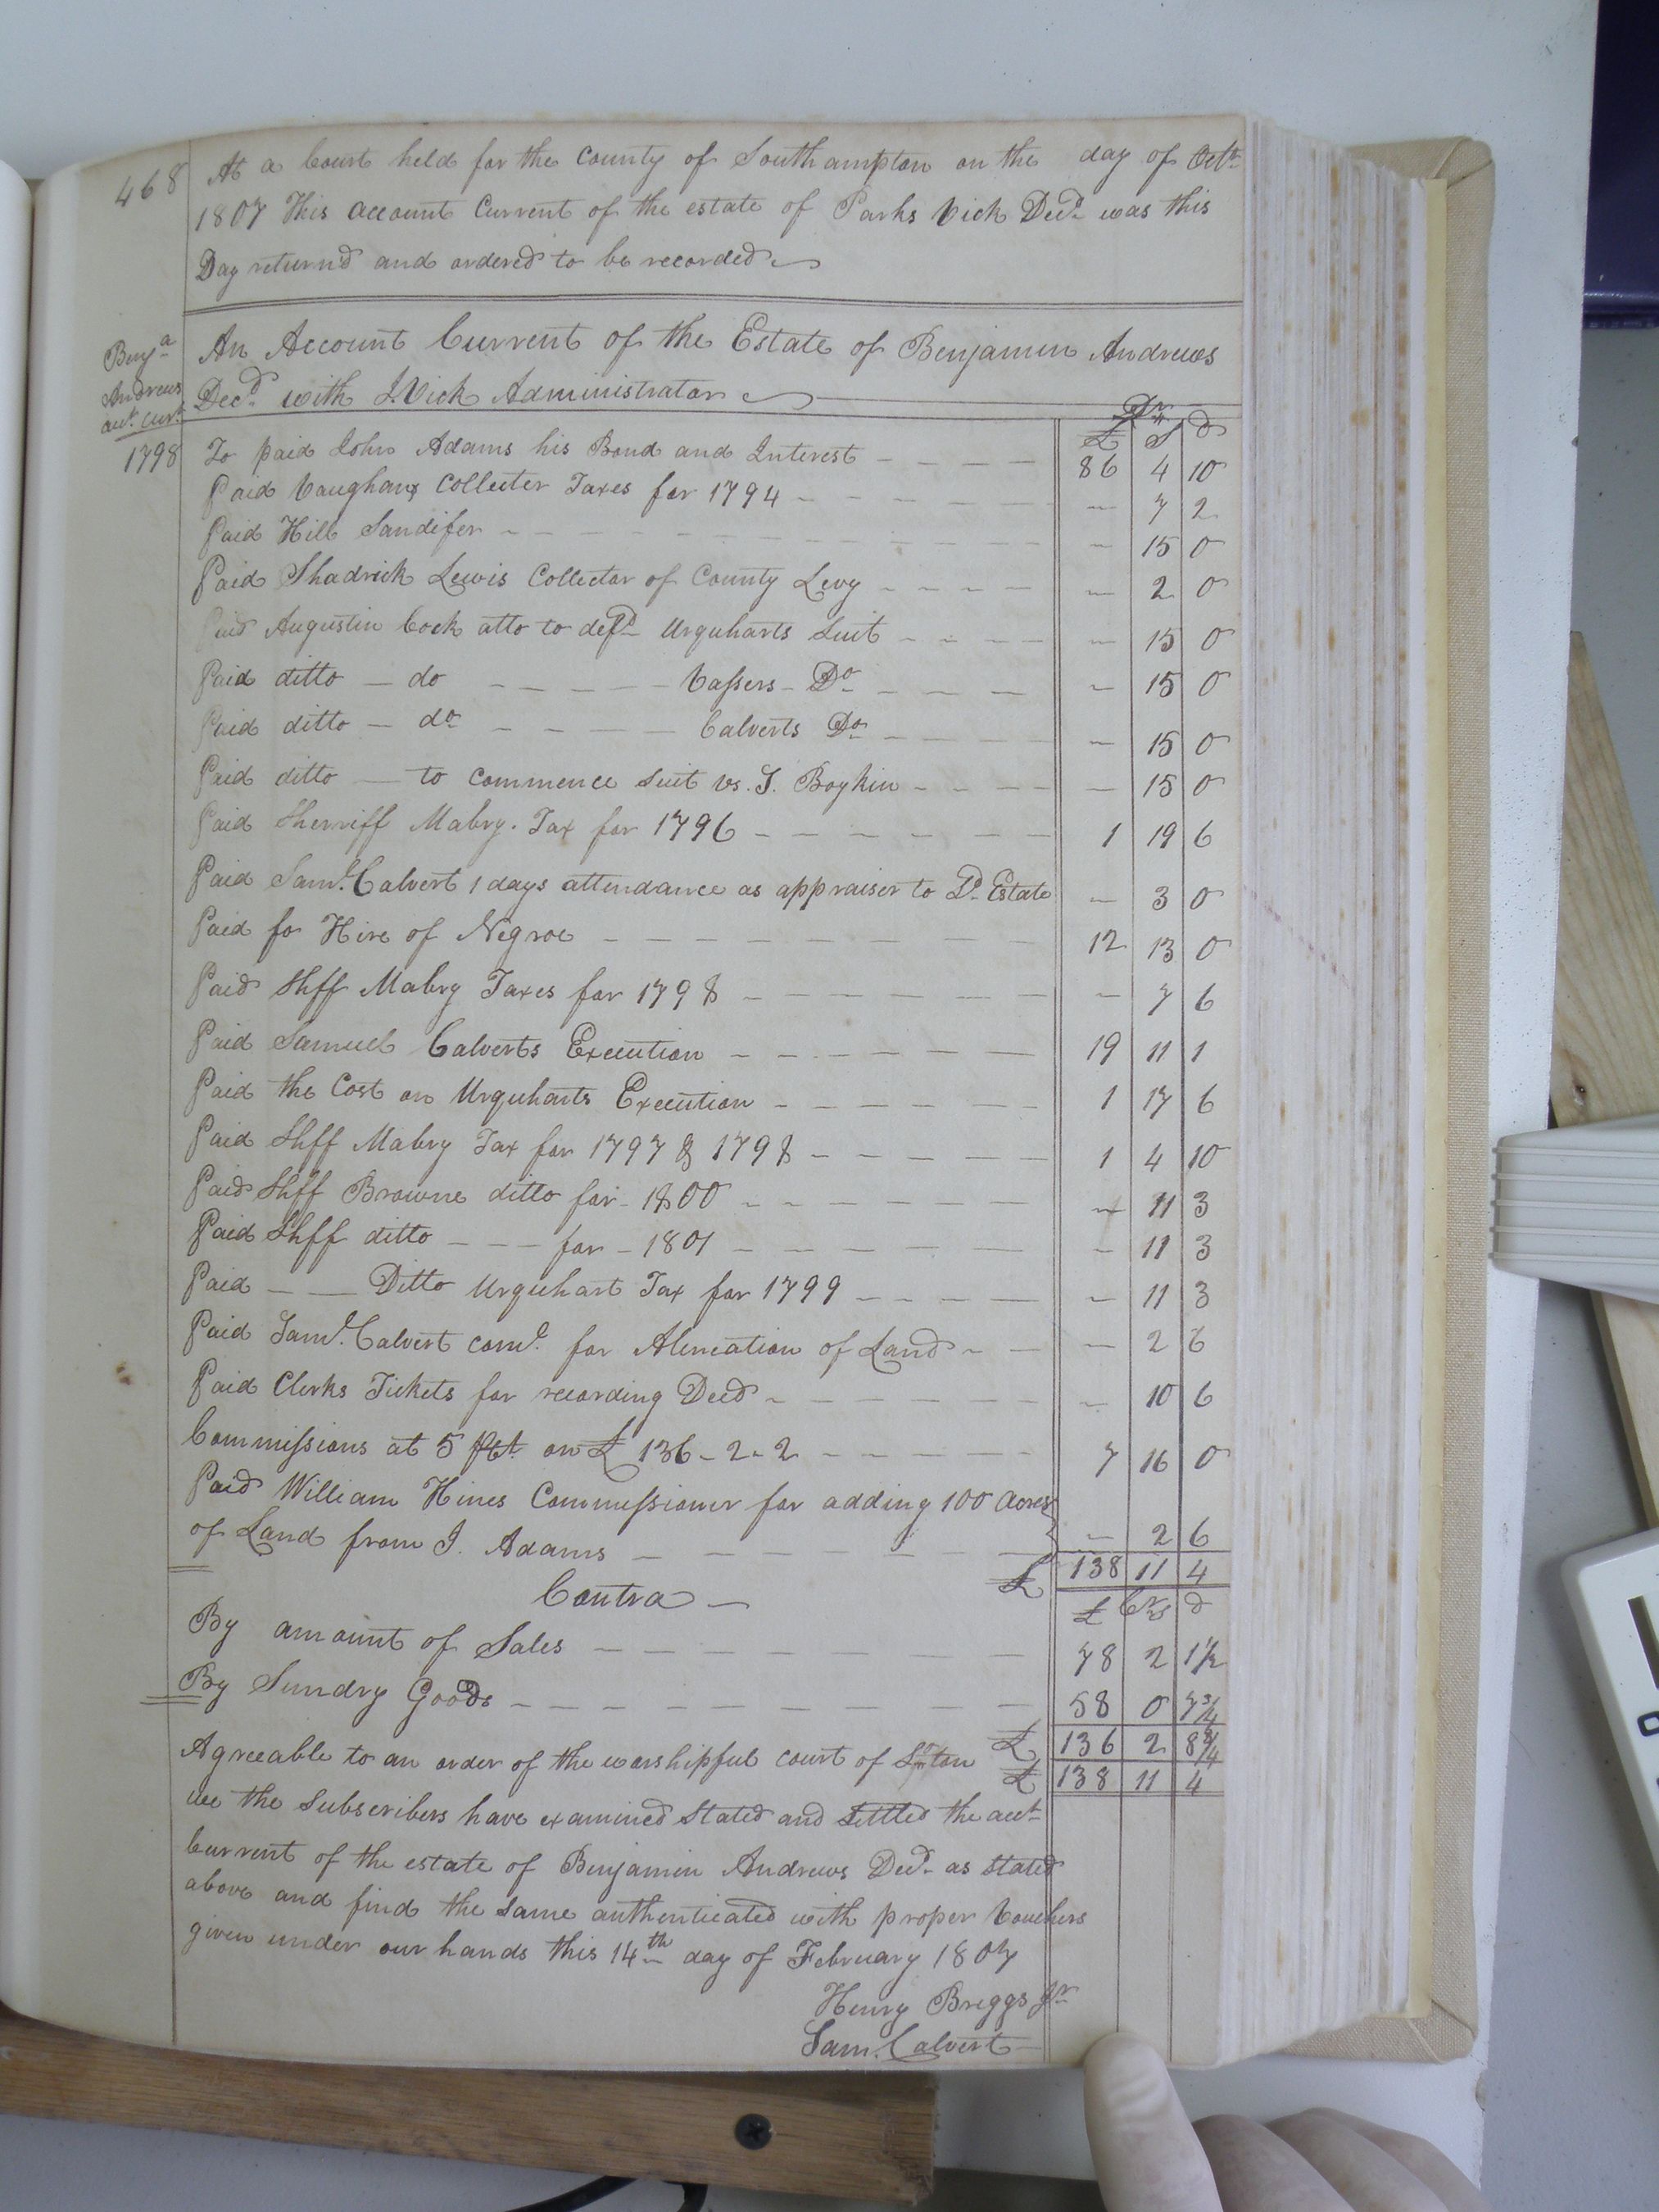 468
At a Court held for the County of Southampton on the day of Octr
1807 This account Current of the estate of Parks Vick Decd was this
Day returnd and ordered to be recorded
Benja
Andrews
acct. Curt.
An Account Current of the Estate of Benjamin Andrews
Decd. with J. Vick Administrator
Dr.
£ S d
1798 To paid John Adams his Bond and Interest 86 4 10
Paid Vaughan Collecter Taxes for 1794 - 7 2
Paid Hill Sandifer - 15 0
Paid Shadrick Lewis Collector of County Levy - 2 0
Paid Augustin Cock atto to defd Urquharts Suit - 15 0
Paid ditto - do Cassers - Do - 15 0
Paid ditto - do Calverts Do - 15 0
Paid ditto to commence suit vs. J. Boykin - 15 0
Paid Sherriff Mabry. Tax for 1796 1 19 6
Paid Saml. Calvert 1 days attendance as appraiser to Dd Estate - 3 0
Paid for Hire of Negroe 12 13 0
Paid Shff Mabry Taxes for 1798 - 7 6
Paid Samuel Calverts Execution 19 11 1
Paid the Cost on Urquharts Execution 1 17 6
Paid Shff Mabry Tax for 1797 & 1798 1 4 10
Paid Shff Browne ditto for - 1800 - 11 3
Paid Shff ditto - for - 1801 - 11 3
Paid Ditto Urquhart Tax for 1799 - 11 3
Paid Saml. Calvert comr. for Alineation of Land - 2 6
Paid Clerks Tickets for recording Deed - 10 6
Commissions at 5 pCt. on £ 136-2-2 7 16 0
Paid William Hines Commissioner for adding 100 Acres
of Land from J. Adams - 2 6
£ 138 11 4
Contra
£ Crs d
By amount of Sales 78 2 1½
By Sundry Goods 58 0 7¾
£ 136 2 8¾
Agreeable to an order of the worshipful court of Soton £ 138 11 4
we the Subscribers have examined Stated and Settled the acct
Current of the estate of Benjamin Andrews Decd as stated
above and find the same authenticated with proper Vouchers
given under our hands this 14th day of February 1807
Henry Briggs Jr
Sam. Calvert